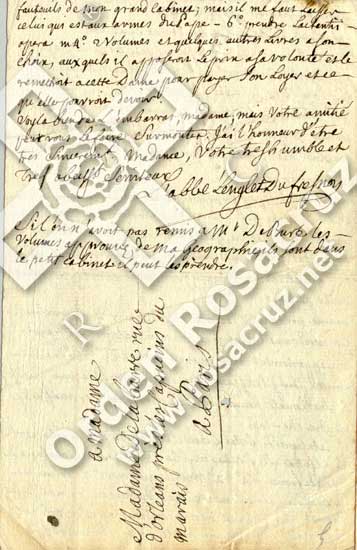 fauteuils de mon grand cabinet, mais il me faut laisser
celui qui est aux armes du Pape - 6° prendre Lactantii
opera in 4° 2 volumes et quelques autres livres a son
choix, auxquels il apposeroit le prix a sa volonté et le
remettroit a cette Dame pour payer son loyer et ce
qu elle pourroit devoir.
Voyla bien de l'embarras, madame, mais votre amitié
peut vous le faire surmonter. J'ai l'honneur d'être
tres sincerement Madame, Votre tres humble et
tres serviteur
L'abbé Lenglet Du fresnoy
Si l'on n'avoit pas remis a Mr Debure les
volumes approuvés de ma geographie ils sont dans
le petit cabinet il peut les prendre.
a madame
Madame De la barre rue
d'orleans près les Capucins du
marais
a Paris
R
Orden Rosacruz
www.rosacruz.net